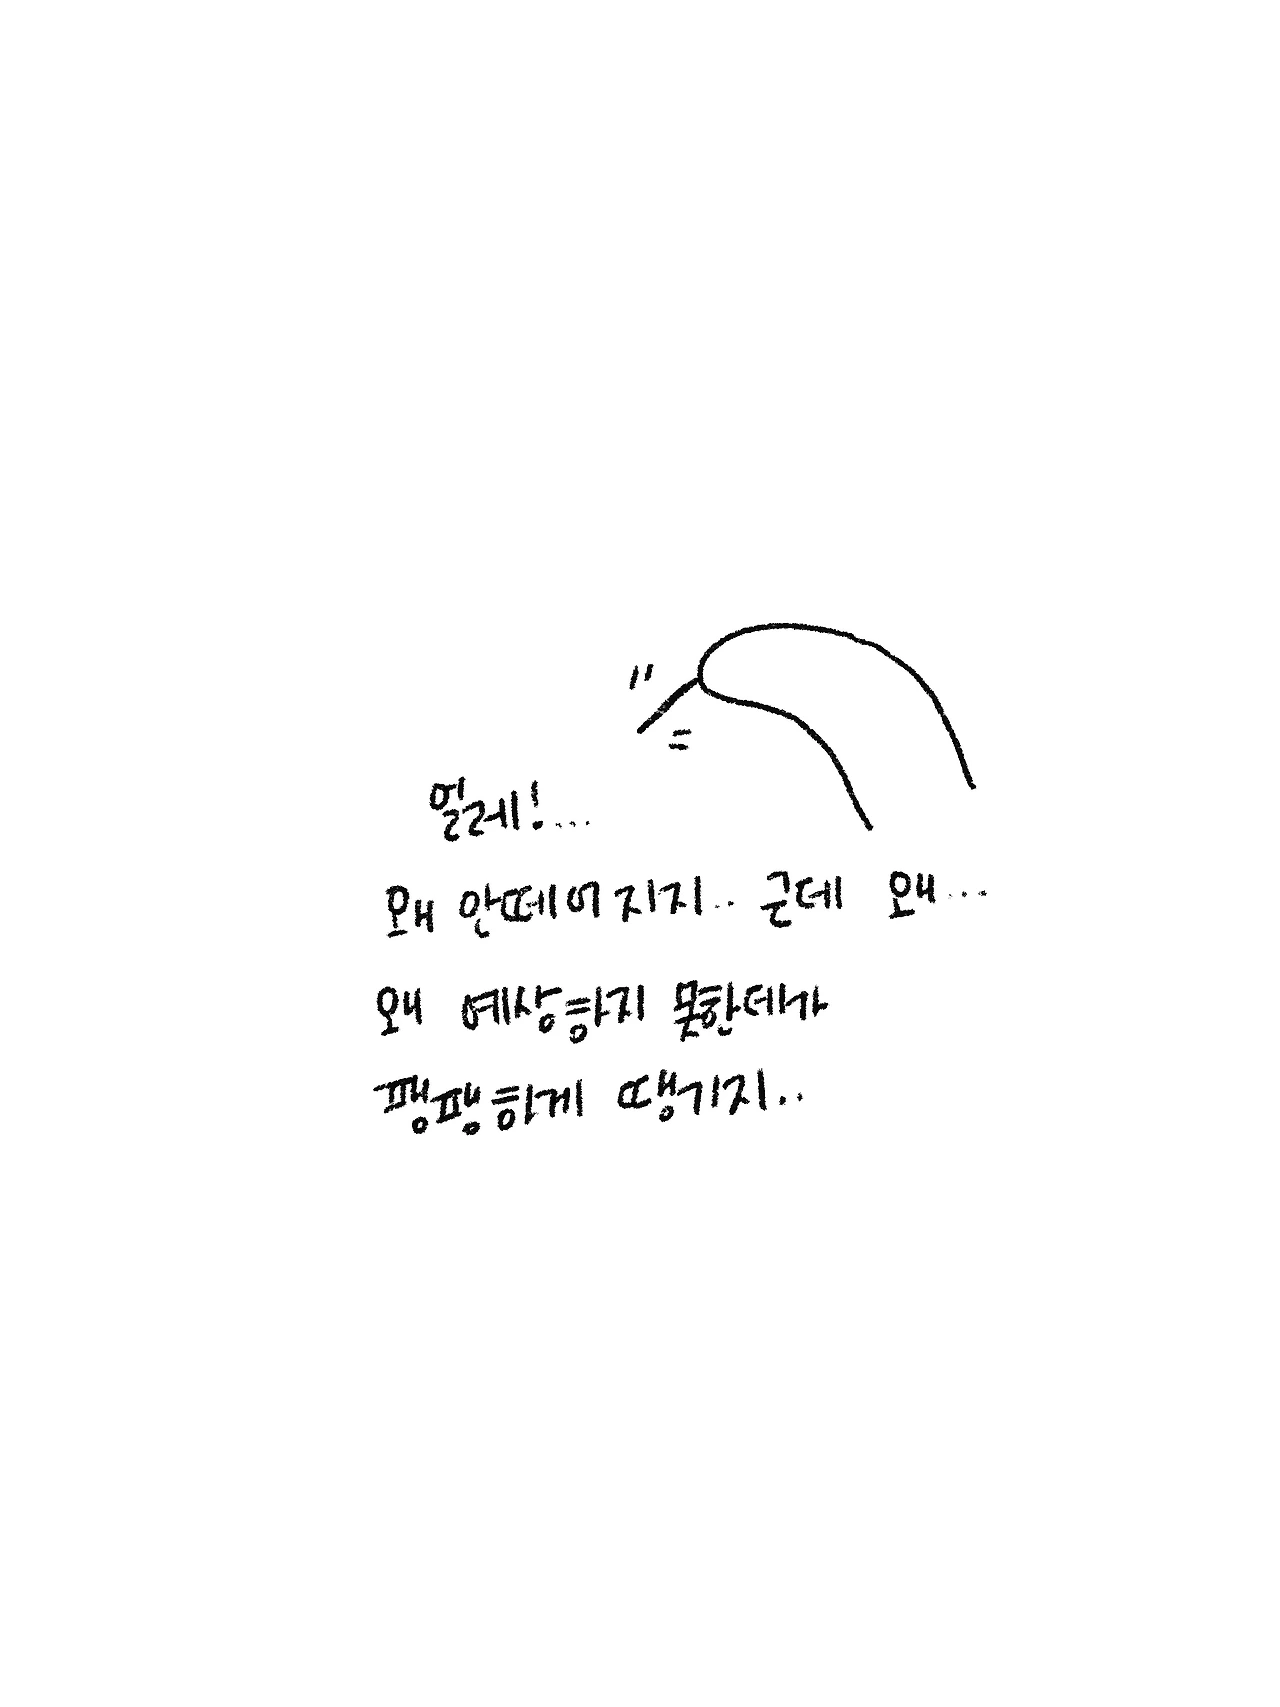 얼레!...
왜 안떼어지지.. 근데 왜...
왜 예상하지 못한데가
팽팽하게 땡기지..